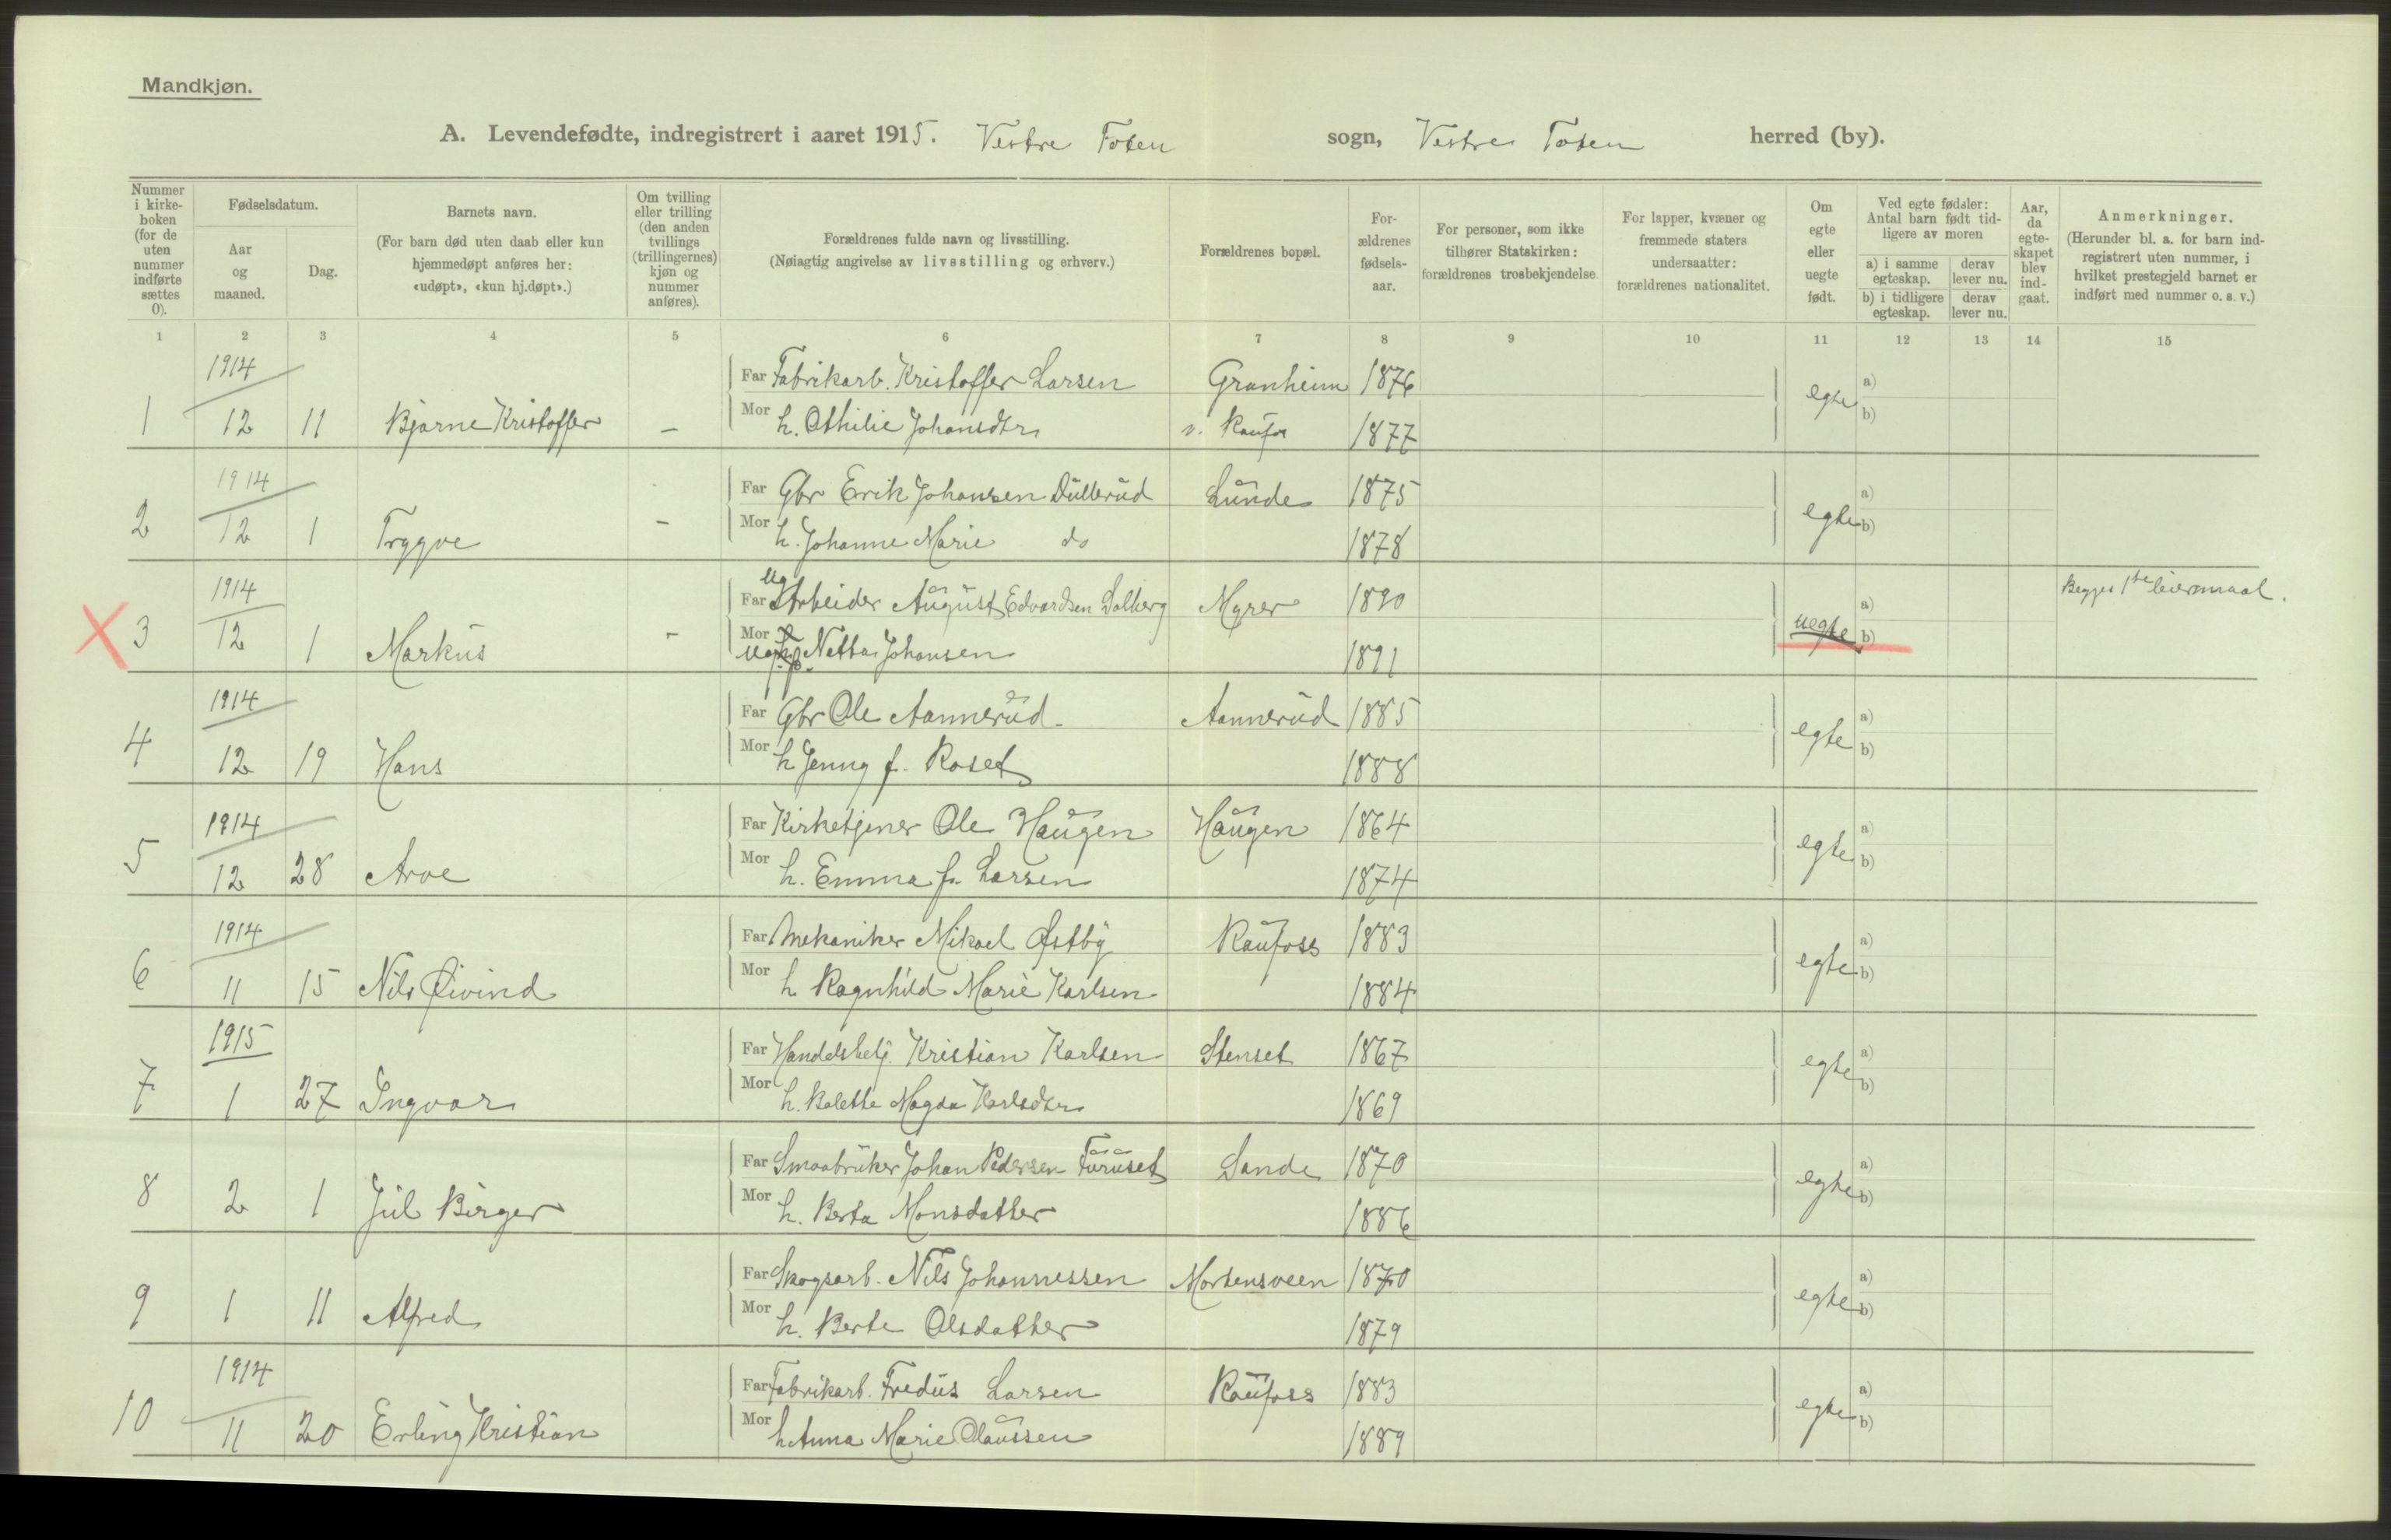 Mandkjøn.
A. Levendefødte, indregistrert i aaret 1915. Vestre Toten sogn, Vestre Toten herred (by).
Nummer i kirke-boken (for de uten nummer indførte sættes 0).
Fødselsdatum.
Aar og maaned.
Dag.
Barnets navn.
(For barn død uten daab eller kun hjemmedøpt anføres her: «udøpt», «kun hj.døpt».)
Om tvilling eller trilling (den anden tvillings (trillingernes) kjøn og nummer anføres).
Forældrenes fulde navn og livsstilling.
(Nøiagtig angivelse av livsstilling og erhverv.)
Forældrenes bopæl.
For-ældrenes fødsels-aar.
For personer, som ikke tilhører Statskirken: forældrenes trosbekjendelse.
For lapper, kvæner og fremmede staters undersaatter: forældrenes nationalitet.
Om egte eller uegte født.
Ved egte fødsler: Antal barn født tid-ligere av moren
a) i samme egteskap. derav lever nu.
b) i tidligere egteskap. derav lever nu.
Aar, da egte-skapet blev ind-gaat.
Anmerkninger.
(Herunder bl. a. for barn ind-registrert uten nummer, i hvilket prestegjeld barnet er indført med nummer o. s. v.)
1 2 3 4 5 6 7 8 9 10 11 12 13 14 15
1914 Far Fabrikarb. Kristoffer Larsen Granheim 1876 egte a)
1 12 11 Bjarne Kristoffer – Mor h. Othilie Johansdtr v. Raufos 1877 b)
1914 Far Gbr Erik Johansen Dullerud Lunde 1875 egte a)
2 12 1 Trygve – Mor h. Johanne Marie do 1878 b)
1914 Far Ug Arbeider August Edvardsen Dalberg Myrer 1890 uegte a) Begges 1ste leiermaal.
3 12 1 Markus – Mor Netta Johansen 1891 b)
1914 Far Gbr Ole Aannerud Aannerud 1885 egte a)
4 12 19 Hans Mor h Jenny f. Roset 1888 b)
1914 Far Kirketjener Ole Haugen Haugen 1864 egte a)
5 12 28 Arve Mor h. Emma f. Larsen 1874 b)
1914 Far Mekaniker Mikael Østby Raufoss 1883 egte a)
6 11 15 Nils Øivind Mor h Ragnhild Marie Karlsen 1884 b)
1915 Far Handelsbetj. Kristian Karlsen Stenset 1867 egte a)
7 1 27 Ingvar Mor h. Bolette Magda Karlsdtr 1869 b)
Far Smaabruker Johan Pedersen Furuset Sande 1870 egte a)
8 2 1 Jul Birger Mor h. Berta Monsdatter 1886 b)
Far Skogsarb. Nils Johannessen Mortensveen 1870 egte a)
9 1 11 Alfred Mor h. Berte Olsdatter 1879 b)
1914 Far Fabrikarb. Fredus Larsen Raufoss 1883 egte a)
10 11 20 Erling Kristian Mor h Anna Marie Claussen 1889 b)